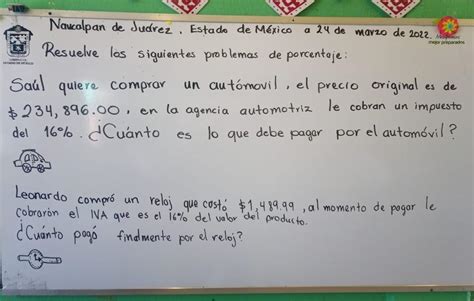 Naucalpan de Juárez, Estado de México a 24 de marzo de 2022.
mejor preparados
Resuelve los siguientes problemas de porcentaje:
Saúl quiere comprar un autómovil, el precio original es de
$234,896.00, en la agencia automotriz le cobran un impuesto
del 16%. ¿Cuánto es lo que debe pagar por el automóvil?
Leonardo compró un reloj que costó $1,489.99, al momento de pagar le
cobrarón el IVA que es el 16% del valor del producto.
¿Cuánto pagó finalmente por el reloj?